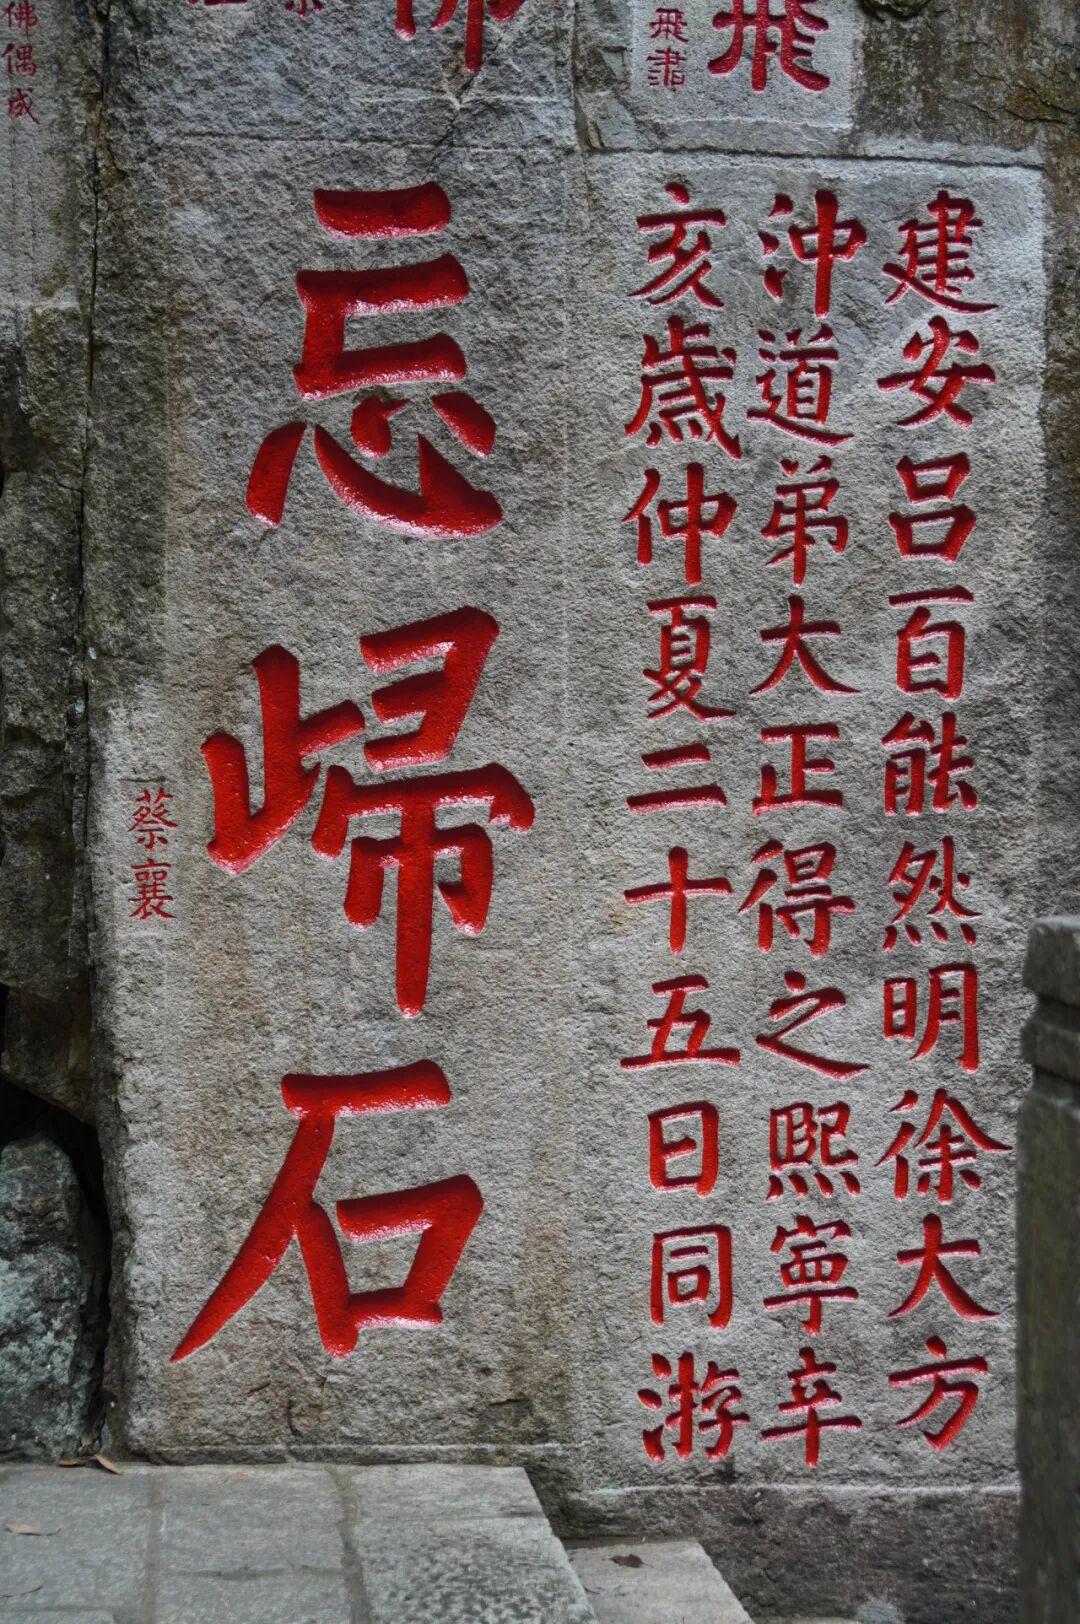 飛
建安呂百能然明徐大方
沖道弟大正得之熙寧辛
亥歲仲夏二十五日同游
忘歸石
蔡襄
佛偶成